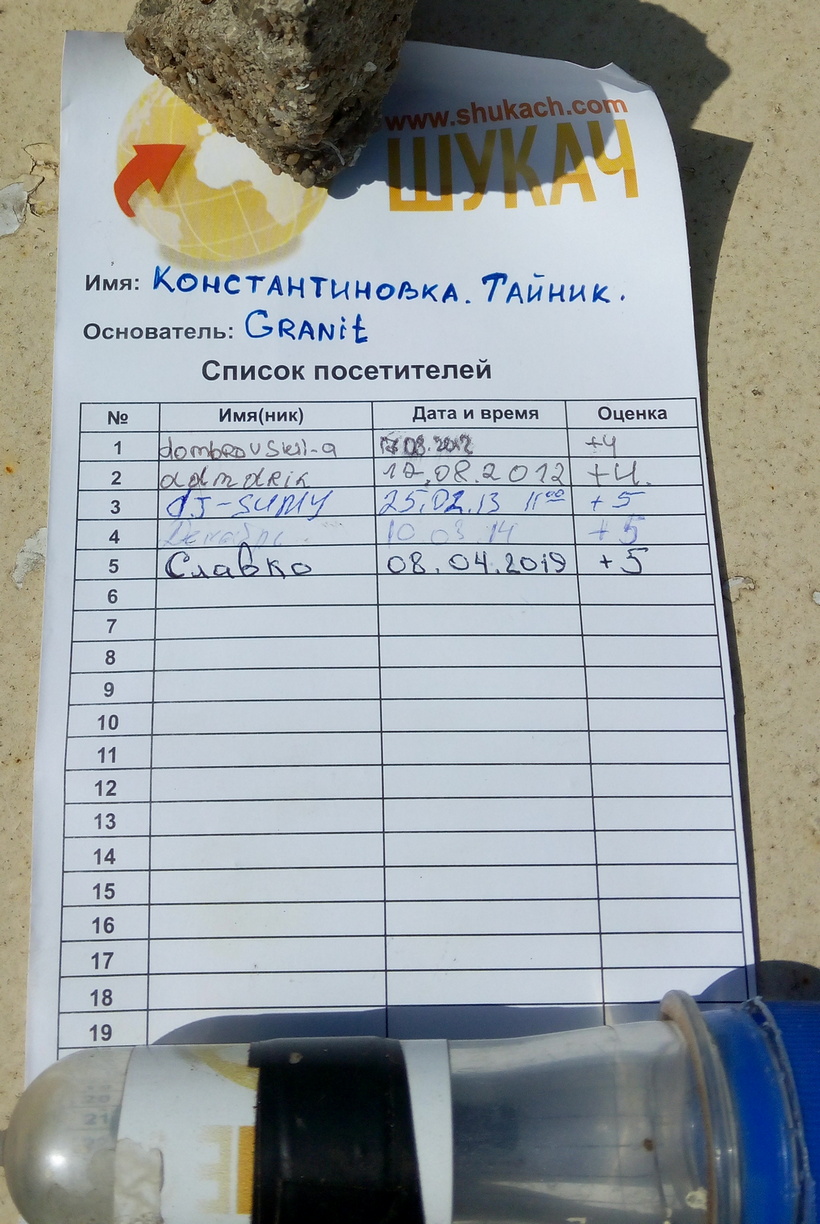 www.shukach.com
ШУКАЧ
Имя: Константиновка. Тайник.
Основатель: Granit
Список посетителей
№ Имя(ник) Дата и время Оценка
1 dombrovskii-a 17.08.2012 +4
2 admdrik 17.08.2012 +4.
3 DJ-SUMY 25.02.13 11 00 +5
4 Декабрь 10 03 14 +5
5 Славко 08.04.2019 +5
6
7
8
9
10
11
12
13
14
15
16
17
18
19
21